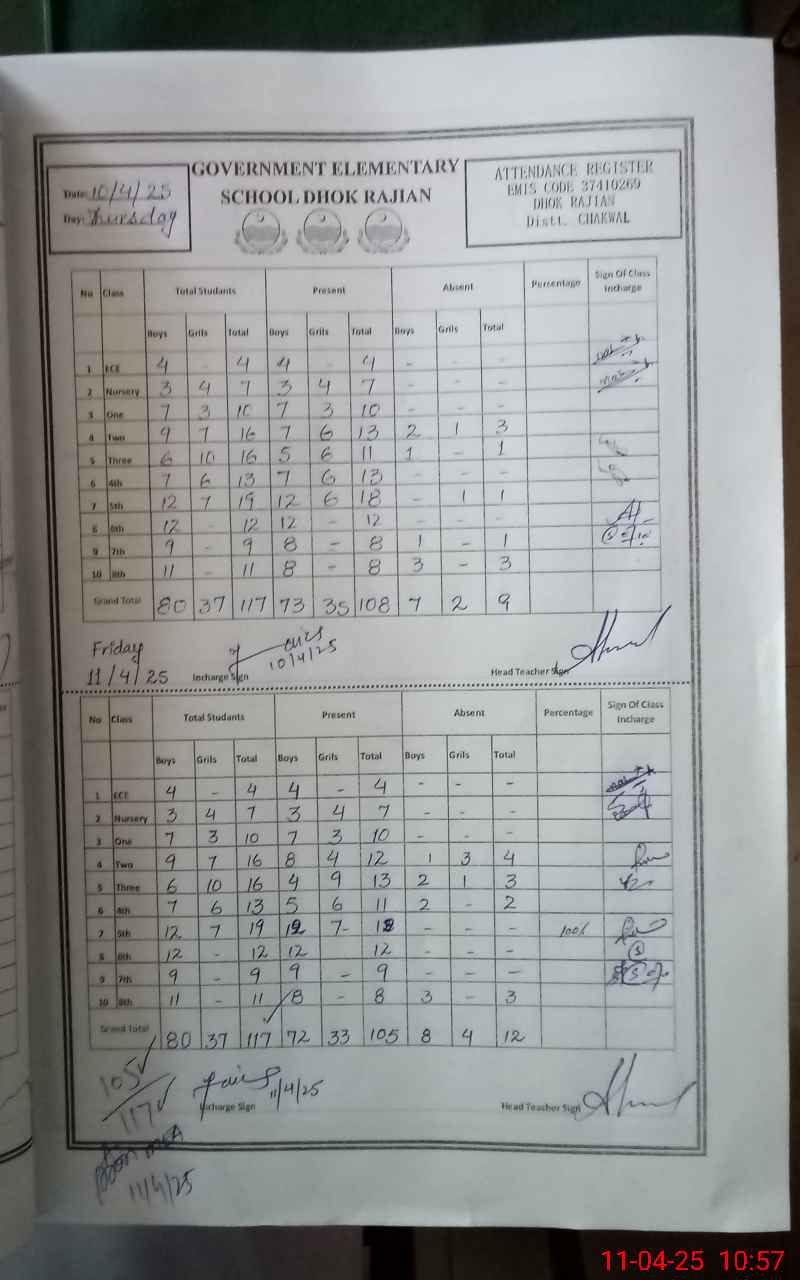 GOVERNMENT ELEMENTARY
SCHOOL DHOK RAJIAN
Date: 10/4/25
Day: Thursday
ATTENDANCE REGISTER
EMIS CODE 37410269
DHOK RAJIAN
Distt. CHAKWAL
No Class Total Studants Present Absent Percentage Sign Of Class Incharge
Boys Grils Total Boys Grils Total Boys Grils Total
1 ECE 4 - 4 4 - 4 - - -
2 Nursery 3 4 7 3 4 7 - - -
3 One 7 3 10 7 3 10 - - -
4 Two 9 7 16 7 6 13 2 1 3
5 Three 6 10 16 5 6 11 1 - 1
6 4th 7 6 13 7 6 13 - - -
7 5th 12 7 19 12 6 18 - 1 1
8 6th 12 - 12 12 - 12 - - -
9 7th 9 - 9 8 - 8 1 - 1
10 8th 11 - 11 8 - 8 3 - 3
Grand Total 80 37 117 73 35 108 7 2 9
Friday
11/4/25
10/4/25
Incharge Sign
Head Teacher Sign
No Class Total Studants Present Absent Percentage Sign Of Class Incharge
Boys Grils Total Boys Grils Total Boys Grils Total
1 ECE 4 - 4 4 - 4 - - -
2 Nursery 3 4 7 3 4 7 - - -
3 One 7 3 10 7 3 10 - - -
4 Two 9 7 16 8 4 12 1 3 4
5 Three 6 10 16 4 9 13 2 1 3
6 4th 7 6 13 5 6 11 2 - 2
7 5th 12 7 19 12 7 - - - 100%
8 6th 12 - 12 12 12 - - -
9 7th 9 - 9 9 - 9 - - -
10 8th 11 - 11 8 - 8 3 - 3
Grand Total 80 37 117 72 33 105 8 4 12
105
117
11/4/25
Incharge Sign
Head Teacher Sign
11/4/25
11-04-25 10:57